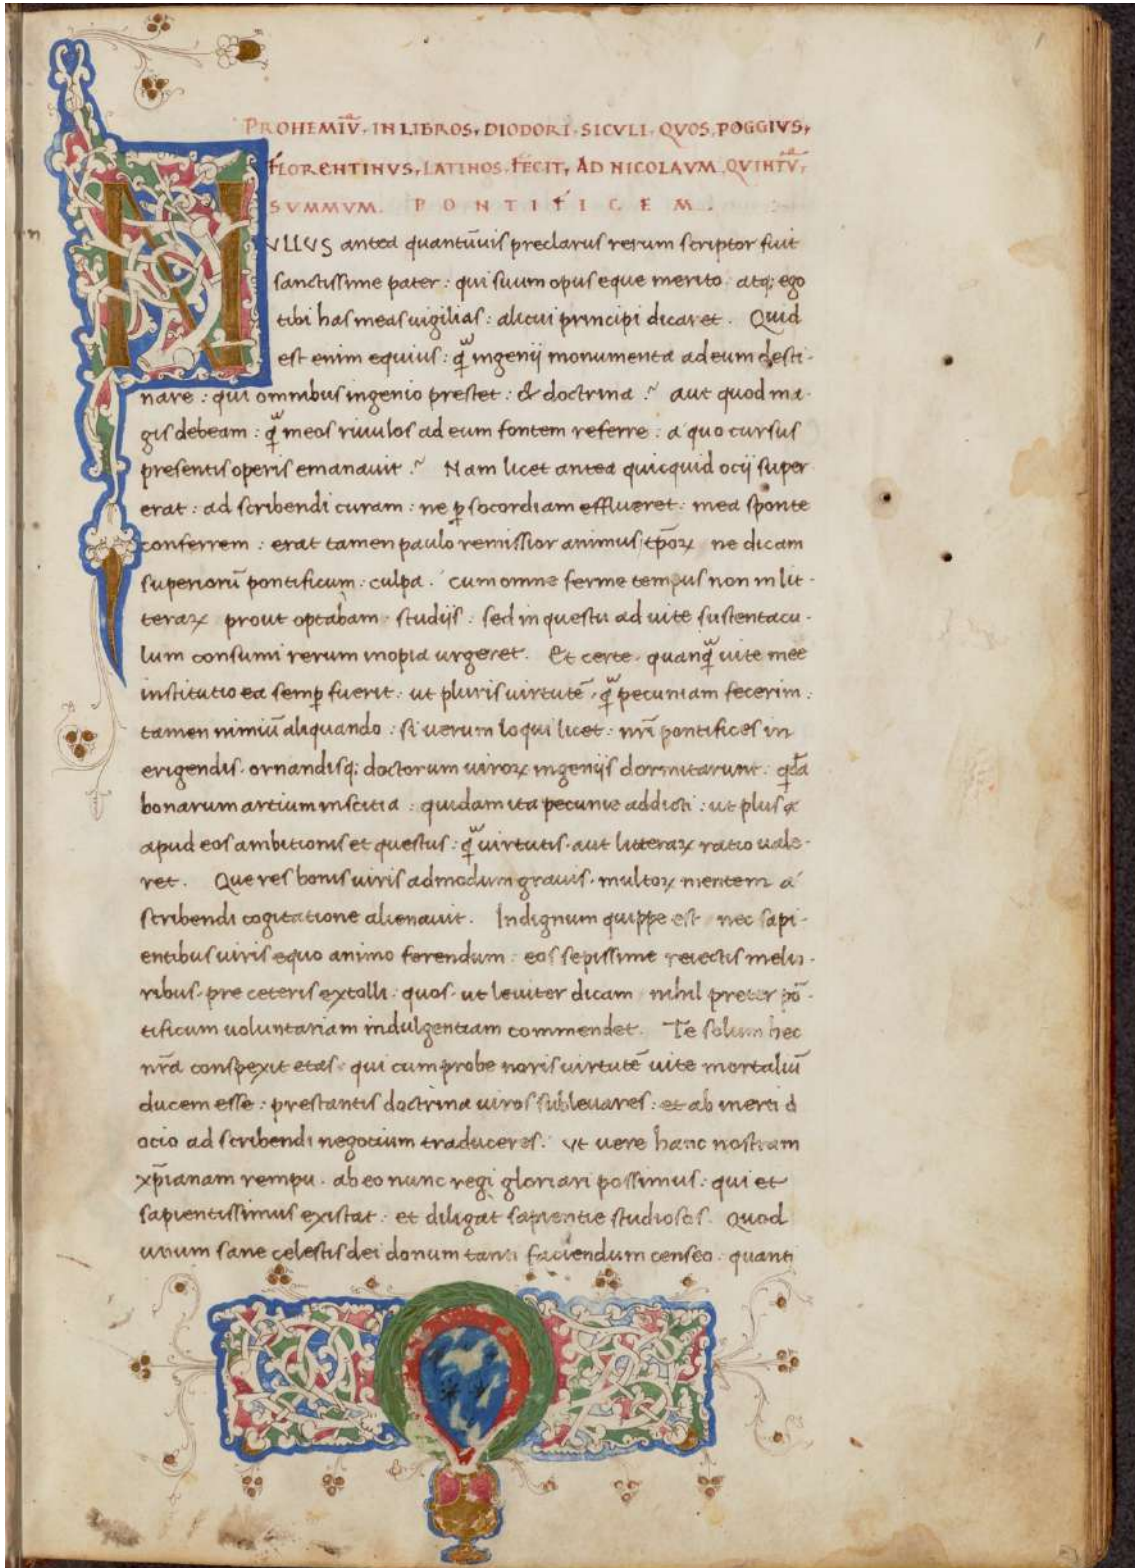 PROHEMIV̄. IN LIBROS. DIODORI. SICVLI. QVOS. POGGIVS.
FLORENTINVS. LATINOS. FECIT. AD NICOLAVM. QVINTV̄.
SVMMVM. PONTIFICEM.
NVLLVS antea quantūuis preclarus rerum scriptor fuit
sanctissime pater : qui suum opus eque merito atq; ego
tibi has meas uigilias : alicui principi dicaret . Quid
est enim equius : q̄ ingenij monumenta ad eum desti-
nare : qui omnibus ingenio prestet : & doctrina ? aut quod ma-
gis debeam : q̄ meos riuulos ad eum fontem referre : a quo cursus
presentis operis emanauit ? Nam licet antea quicquid ocij super
erat : ad scribendi curam : ne ꝑ socordiam efflueret : mea sponte
conferrem : erat tamen paulo remissior animus tp̄oꝝ ne dicam
superiorū pontificum . culpa . cum omne ferme tempus non in lit-
teraꝝ prout optabam . studijs . sed in questu ad uite sustentacu-
lum consumi rerum inopia urgeret . Et certe . quanq̄ uite mee
institutio ea semꝑ fuerit . ut pluris uirtutē . q̄ pecuniam fecerim .
tamen nimiū aliquando : si uerum loqui licet : nr̄i pontifices in
erigendis . ornandisq; doctorum uiroꝝ ingenijs dormitarunt .
bonarum artium inscitia : quidam ita pecunie addicti : ut plus
apud eos ambitionis et questus : q̄ uirtutis . aut litteraꝝ ratio uale-
ret . Que res bonis uiris admodum grauis . multoꝝ mentem a
scribendi cogitatione alienauit . Indignum quippe est nec sapi-
entibus uiris equo animo ferendum . eos sepissime reiectis melio-
ribus . pre ceteris extolli . quos . ut leuiter dicam nihil preter pō-
tificum uoluntariam indulgentiam commendet . Te solum hec
nr̄a conspexit etas . qui cum probe noris uirtutē uite mortaliū
ducem esse : prestantis doctrina uiros subleuares : et ab inerti
ocio ad scribendi negocium traduceres . Vt uere hanc nostram
xp̄ianam rempu . ab eo nunc regi gloriari possimus : qui et
sapientissimus existat . et diligat sapientie studiosos . Quod
unum sane celestis dei donum tanti faciendum censeo . quanti